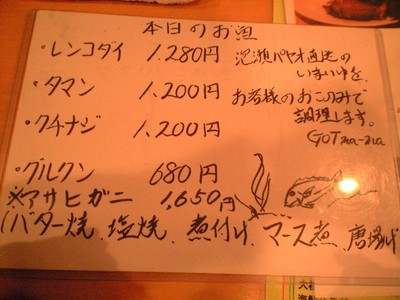 本日のお漁
・レンコダイ 1,280円
・タマン 1,200円
・クチナジ 1,200円
・グルクン 680円
※アサヒガニ 1,650円
(バター焼、塩焼、煮付け、マース煮、唐揚げ
泡瀬パヤオ直送の
いまいゆを、
お客様のおこのみで
調理します。